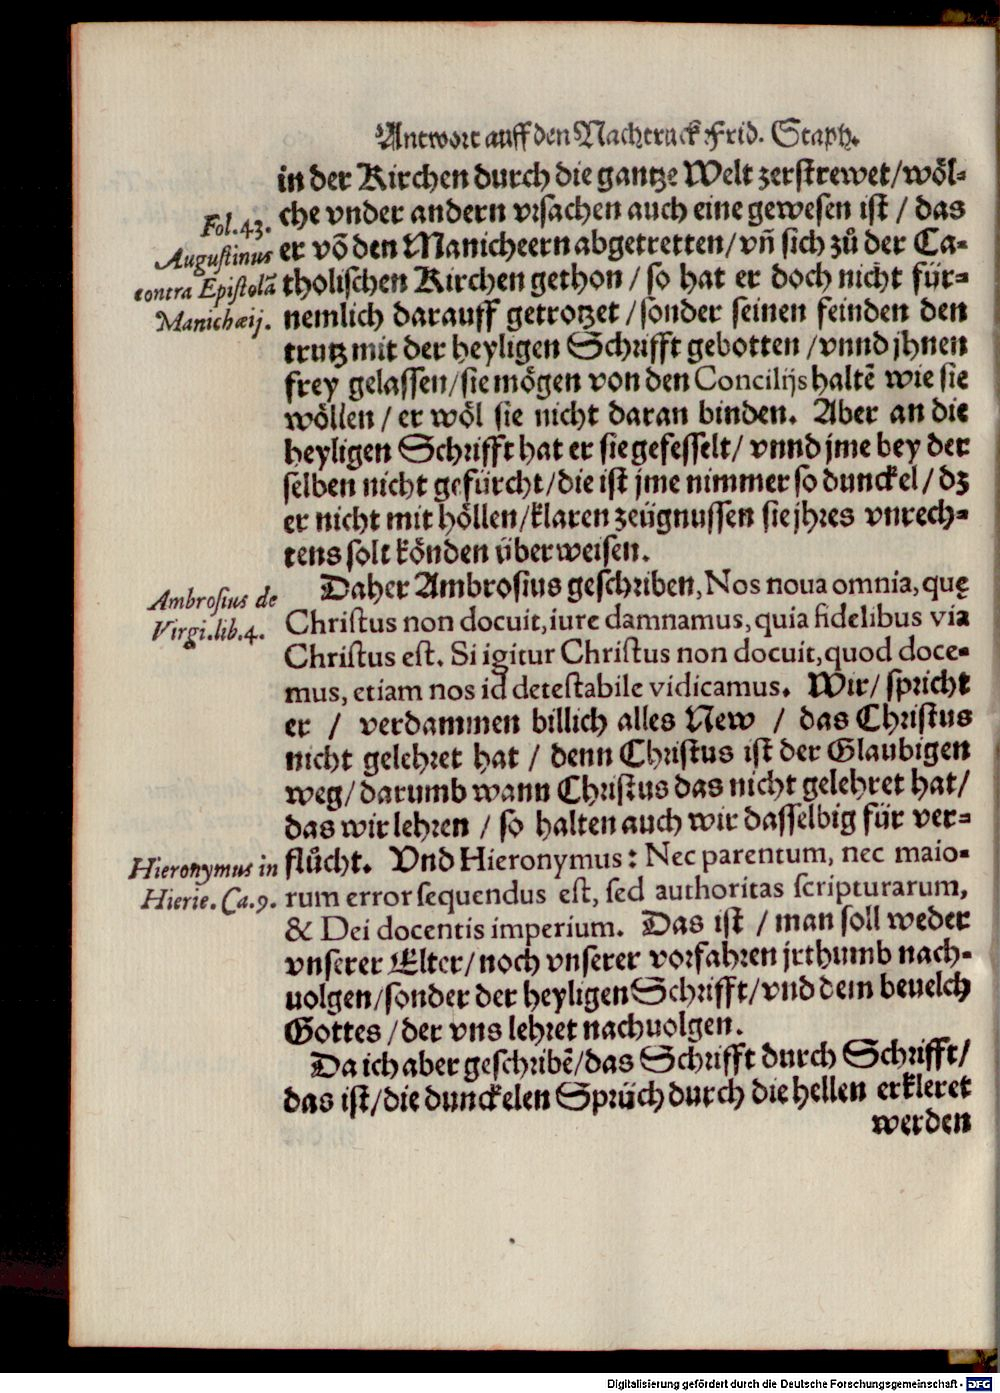 Antwort auff den Nachtruck Frid. Staph.
in der Kirchen durch die gantze Welt zerstrewet/wöl-
che vnder andern vrsachen auch eine gewesen ist / das
Fol.43.
er võ den Manicheern abgetretten/vñ sich zů der Ca-
Augustinus
tholischen Kirchen gethon / so hat er doch nicht für-
contra Epistolã
nemlich darauff getrotzet / sonder seinen feinden den
Manichæij.
trutz mit der heyligen Schrifft gebotten / vnnd jhnen
frey gelassen/sie mögen von den Concilijs haltẽ wie sie
wöllen / er wöl sie nicht daran binden. Aber an die
heyligen Schrifft hat er sie gefesselt/ vnnd jme bey der
selben nicht gefürcht/die ist jme nimmer so dunckel/ dz
er nicht mit höllen/klaren zeügnussen sie jhres vnrech-
tens solt könden überweisen.
Daher Ambrosius geschriben, Nos noua omnia, quę
Ambrosius de
Christus non docuit, iure damnamus, quia fidelibus via
Virgi.lib.4.
Christus est. Si igitur Christus non docuit, quod doce-
mus, etiam nos id detestabile vidicamus. Wir/ spricht
er / verdammen billich alles New / das Christus
nicht gelehret hat / denn Christus ist der Glaubigen
weg/ darumb wann Christus das nicht gelehret hat/
das wir lehren / so halten auch wir dasselbig für ver-
flůcht. Vnd Hieronymus: Nec parentum, nec maio-
Hieronymus in
rum error sequendus est, sed authoritas scripturarum,
Hierie. Ca.9.
& Dei docentis imperium. Das ist / man soll weder
vnserer Elter/ noch vnserer vorfahren jrthumb nach-
uolgen/sonder der heyligen Schrifft/vnd dem beuelch
Gottes / der vns lehret nachuolgen.
Da ich aber geschribẽ/das Schrifft durch Schrifft/
das ist/die dunckelen Sprüch durch die hellen erkleret
werden
Digitalisierung gefördert durch die Deutsche Forschungsgemeinschaft - DFG